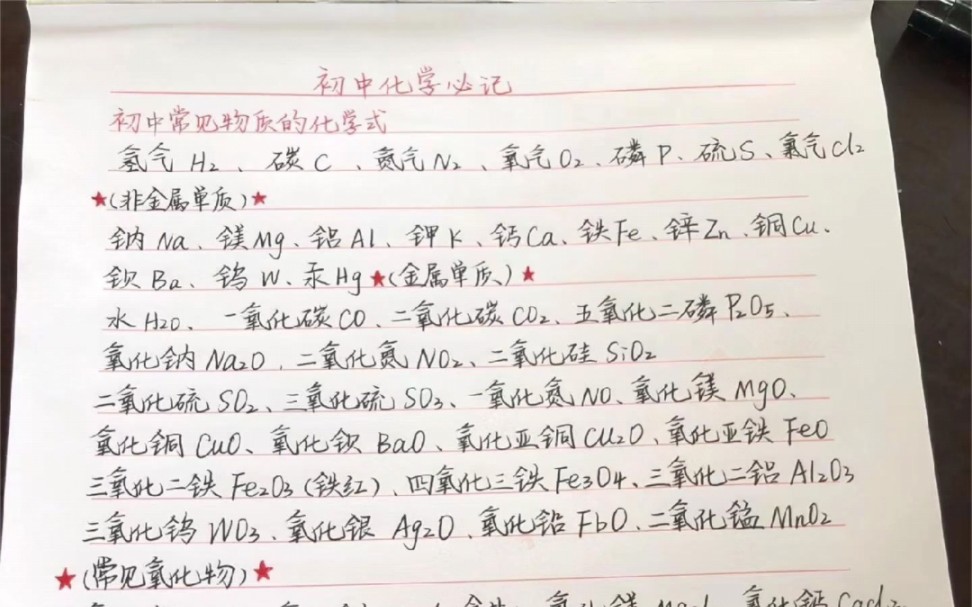 初中化学必记
初中常见物质的化学式
氢气 H2、碳 C、氮气 N2、氧气 O2、磷 P、硫 S、氯气 Cl2
★(非金属单质)★
钠 Na、镁 Mg、铝 Al、钾 K、钙 Ca、铁 Fe、锌 Zn、铜 Cu、
钡 Ba、钨 W、汞 Hg ★(金属单质)★
水 H2O、一氧化碳 CO、二氧化碳 CO2、五氧化二磷 P2O5、
氧化钠 Na2O、二氧化氮 NO2、二氧化硅 SiO2
二氧化硫 SO2、三氧化硫 SO3、一氧化氮 NO、氧化镁 MgO、
氧化铜 CuO、氧化钡 BaO、氧化亚铜 Cu2O、氧化亚铁 FeO
三氧化二铁 Fe2O3 (铁红)、四氧化三铁 Fe3O4、三氧化二铝 Al2O3
三氧化钨 WO3、氧化银 Ag2O、氧化铅 FbO、二氧化锰 MnO2
★(常见氧化物)★